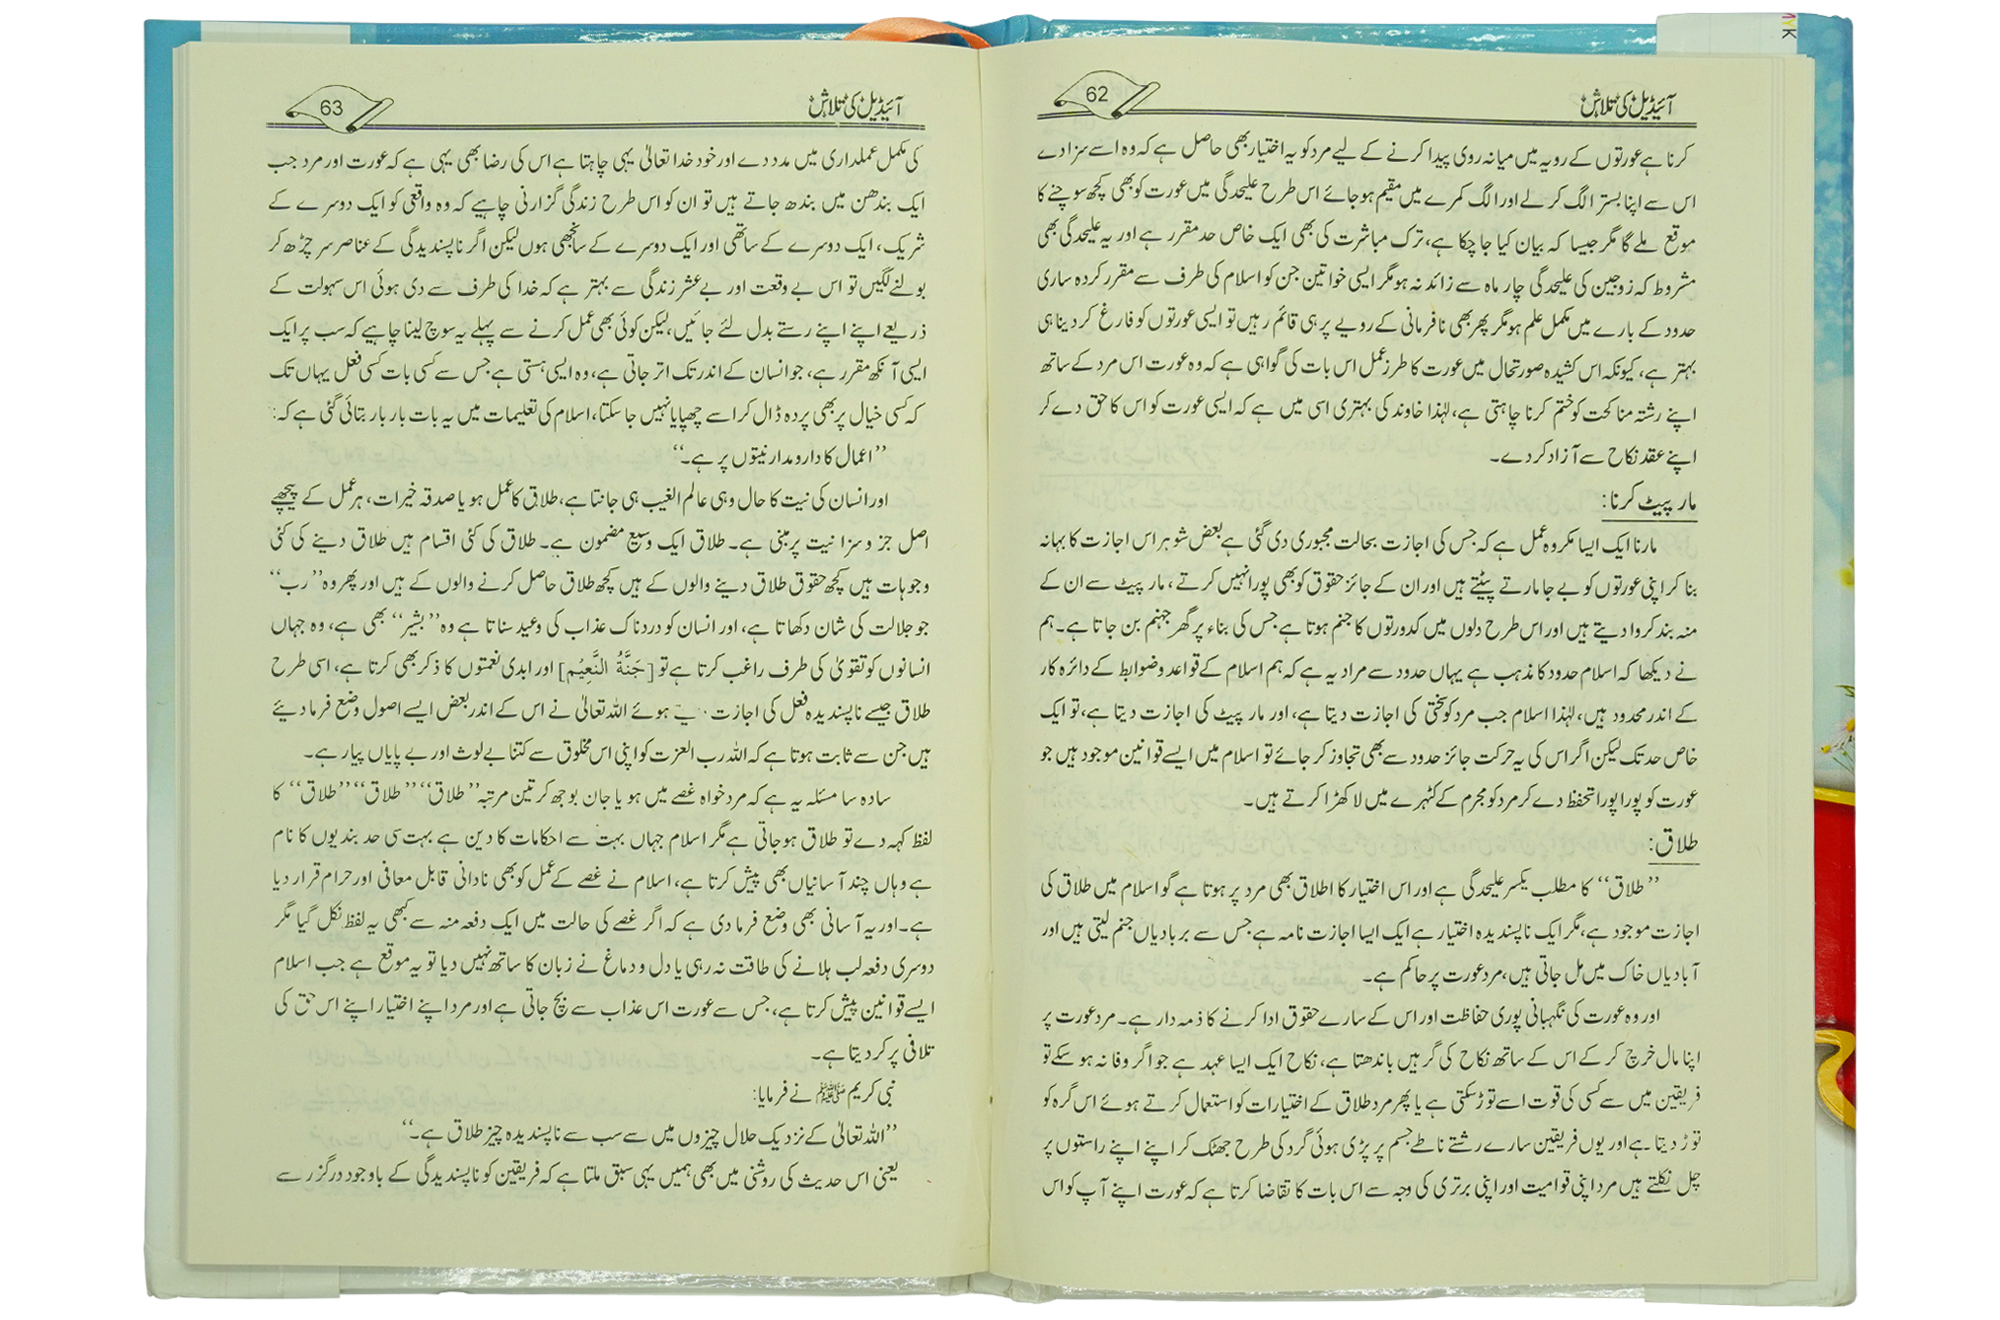 آئیڈیل کی تلاش 62
کرنا ہے عورتوں کے رویہ میں میانہ روی پیدا کرنے کے لیے مرد کو یہ اختیار بھی حاصل ہے کہ وہ اسے سزا دے
اس سے اپنا بستر الگ کر لے اور الگ کمرے میں مقیم ہو جائے اس طرح علیحدگی میں عورت کو بھی کچھ سوچنے کا
موقع ملے گا مگر جیسا کہ بیان کیا جا چکا ہے، ترک مباشرت کی بھی ایک خاص حد مقرر ہے اور یہ علیحدگی بھی
مشروط کہ زوجین کی علیحدگی چار ماہ سے زائد نہ ہو مگر ایسی خواتین جن کو اسلام کی طرف سے مقرر کردہ ساری
حدود کے بارے میں مکمل علم ہو مگر پھر بھی نافرمانی کے رویے پر ہی قائم رہیں تو ایسی عورتوں کو فارغ کر دینا ہی
بہتر ہے، کیونکہ اس کشیدہ صورتحال میں عورت کا طرز عمل اس بات کی گواہی ہے کہ وہ عورت اس مرد کے ساتھ
اپنے رشتہ مناکحت کو ختم کرنا چاہتی ہے، لہٰذا خاوند کی بہتری اسی میں ہے کہ ایسی عورت کو اس کا حق دے کر
اپنے عقد نکاح سے آزاد کر دے۔
مار پیٹ کرنا:
مارنا ایک ایسا مکروہ عمل ہے کہ جس کی اجازت بحالت مجبوری دی گئی ہے بعض شوہر اس اجازت کا بہانہ
بنا کر اپنی عورتوں کو بے جا مارتے پیٹتے ہیں اور ان کے جائز حقوق کو بھی پورا نہیں کرتے، مار پیٹ سے ان کے
منہ بند کروا دیتے ہیں اور اس طرح دلوں میں کدورتوں کا جنم ہوتا ہے جس کی بناء پر گھر جہنم بن جاتا ہے۔ ہم
نے دیکھا کہ اسلام حدود کا مذہب ہے یہاں حدود سے مراد یہ ہے کہ ہم اسلام کے قواعد و ضوابط کے دائرہ کار
کے اندر محدود ہیں، لہٰذا اسلام جب مرد کو سختی کی اجازت دیتا ہے، اور مار پیٹ کی اجازت دیتا ہے، تو ایک
خاص حد تک لیکن اگر اس کی یہ حرکت جائز حدود سے بھی تجاوز کر جائے تو اسلام میں ایسے قوانین موجود ہیں جو
عورت کو پورا پورا تحفظ دے کر مرد کو مجرم کے کٹہرے میں لا کھڑا کرتے ہیں۔
طلاق:
’’طلاق‘‘ کا مطلب یکسر علیحدگی ہے اور اس اختیار کا اطلاق بھی مرد پر ہوتا ہے گو اسلام میں طلاق کی
اجازت موجود ہے، مگر ایک ناپسندیدہ اختیار ہے ایک ایسا اجازت نامہ ہے جس سے بربادیاں جنم لیتی ہیں اور
آبادیاں خاک میں مل جاتی ہیں، مرد عورت پر حاکم ہے۔
اور وہ عورت کی نگہبانی پوری حفاظت اور اس کے سارے حقوق ادا کرنے کا ذمہ دار ہے۔ مرد عورت پر
اپنا مال خرچ کر کے اس کے ساتھ نکاح کی گرہیں باندھتا ہے، نکاح ایک ایسا عہد ہے جو اگر وفا نہ ہو سکے تو
فریقین میں سے کسی کی قوت اسے توڑ سکتی ہے یا پھر مرد طلاق کے اختیارات کو استعمال کرتے ہوئے اس گرہ کو
توڑ دیتا ہے اور یوں فریقین سارے رشتے ناطے جسم پر پڑی ہوئی گرد کی طرح جھٹک کر اپنے اپنے راستوں پر
چل نکلتے ہیں مرد اپنی قوامیت اور اپنی برتری کی وجہ سے اس بات کا تقاضا کرتا ہے کہ عورت اپنے آپ کو اس
آئیڈیل کی تلاش 63
کی مکمل عملداری میں مدد دے اور خود خدا تعالیٰ یہی چاہتا ہے اس کی رضا بھی یہی ہے کہ عورت اور مرد جب
ایک بندھن میں بندھ جاتے ہیں تو ان کو اس طرح زندگی گزارنی چاہیے کہ وہ واقعی کو ایک دوسرے کے
شریک، ایک دوسرے کے ساتھی اور ایک دوسرے کے سانجھی ہوں لیکن اگر ناپسندیدگی کے عناصر سر چڑھ کر
بولنے لگیں تو اس بے وقعت اور بے عشر زندگی سے بہتر ہے کہ خدا کی طرف سے دی ہوئی اس سہولت کے
ذریعے اپنے اپنے رستے بدل لئے جائیں، لیکن کوئی بھی عمل کرنے سے پہلے یہ سوچ لینا چاہیے کہ سب پر ایک
ایسی آنکھ مقرر ہے، جو انسان کے اندر تک اتر جاتی ہے، وہ ایسی ہستی ہے جس سے کسی بات کسی فعل یہاں تک
کہ کسی خیال پر بھی پردہ ڈال کر اسے چھپایا نہیں جا سکتا، اسلام کی تعلیمات میں یہ بات بار بار بتائی گئی ہے کہ:
’’اعمال کا دارومدار نیتوں پر ہے۔‘‘
اور انسان کی نیت کا حال وہی عالم الغیب ہی جانتا ہے، طلاق کا عمل ہو یا صدقہ خیرات، ہر عمل کے پیچھے
اصل جز و سزا نیت پر مبنی ہے۔ طلاق ایک وسیع مضمون ہے۔ طلاق کی کئی اقسام ہیں طلاق دینے کی کئی
وجوہات ہیں کچھ حقوق طلاق دینے والوں کے ہیں کچھ طلاق حاصل کرنے والوں کے ہیں اور پھر وہ ’’رب‘‘
جو جلالت کی شان دکھاتا ہے، اور انسان کو دردناک عذاب کی وعید سناتا ہے وہ ’’بشیر‘‘ بھی ہے، وہ جہاں
انسانوں کو تقویٰ کی طرف راغب کرتا ہے تو [جَنَّةُ النَّعِيْم] اور ابدی نعمتوں کا ذکر بھی کرتا ہے، اسی طرح
طلاق جیسے ناپسندیدہ فعل کی اجازت ہوئے اللہ تعالیٰ نے اس کے اندر بعض ایسے اصول وضع فرما دیئے
ہیں جن سے ثابت ہوتا ہے کہ اللہ رب العزت کو اپنی اس مخلوق سے کتنا بے لوث اور بے پایاں پیار ہے۔
سادہ سا مسئلہ یہ ہے کہ مرد خواہ غصے میں ہو یا جان بوجھ کر تین مرتبہ ’’طلاق‘‘ ’’طلاق‘‘ ’’طلاق‘‘ کا
لفظ کہہ دے تو طلاق ہو جاتی ہے مگر اسلام جہاں بہت سے احکامات کا دین ہے بہت سی حد بندیوں کا نام
ہے وہاں چند آسانیاں بھی پیش کرتا ہے، اسلام نے غصے کے عمل کو بھی نادانی قابل معافی اور حرام قرار دیا
ہے۔ اور یہ آسانی بھی وضع فرما دی ہے کہ اگر غصے کی حالت میں ایک دفعہ منہ سے کبھی یہ لفظ نکل گیا مگر
دوسری دفعہ لب ہلانے کی طاقت نہ رہی یا دل و دماغ نے زبان کا ساتھ نہیں دیا تو یہ موقع ہے جب اسلام
ایسے قوانین پیش کرتا ہے، جس سے عورت اس عذاب سے بچ جاتی ہے اور مرد اپنے اختیار اپنے اس حق کی
تلافی پر کر دیتا ہے۔
نبی کریم ﷺ نے فرمایا:
’’اللہ تعالیٰ کے نزدیک حلال چیزوں میں سے سب سے ناپسندیدہ چیز طلاق ہے۔‘‘
یعنی اس حدیث کی روشنی میں بھی ہمیں یہی سبق ملتا ہے کہ فریقین کو ناپسندیدگی کے باوجود درگزر سے